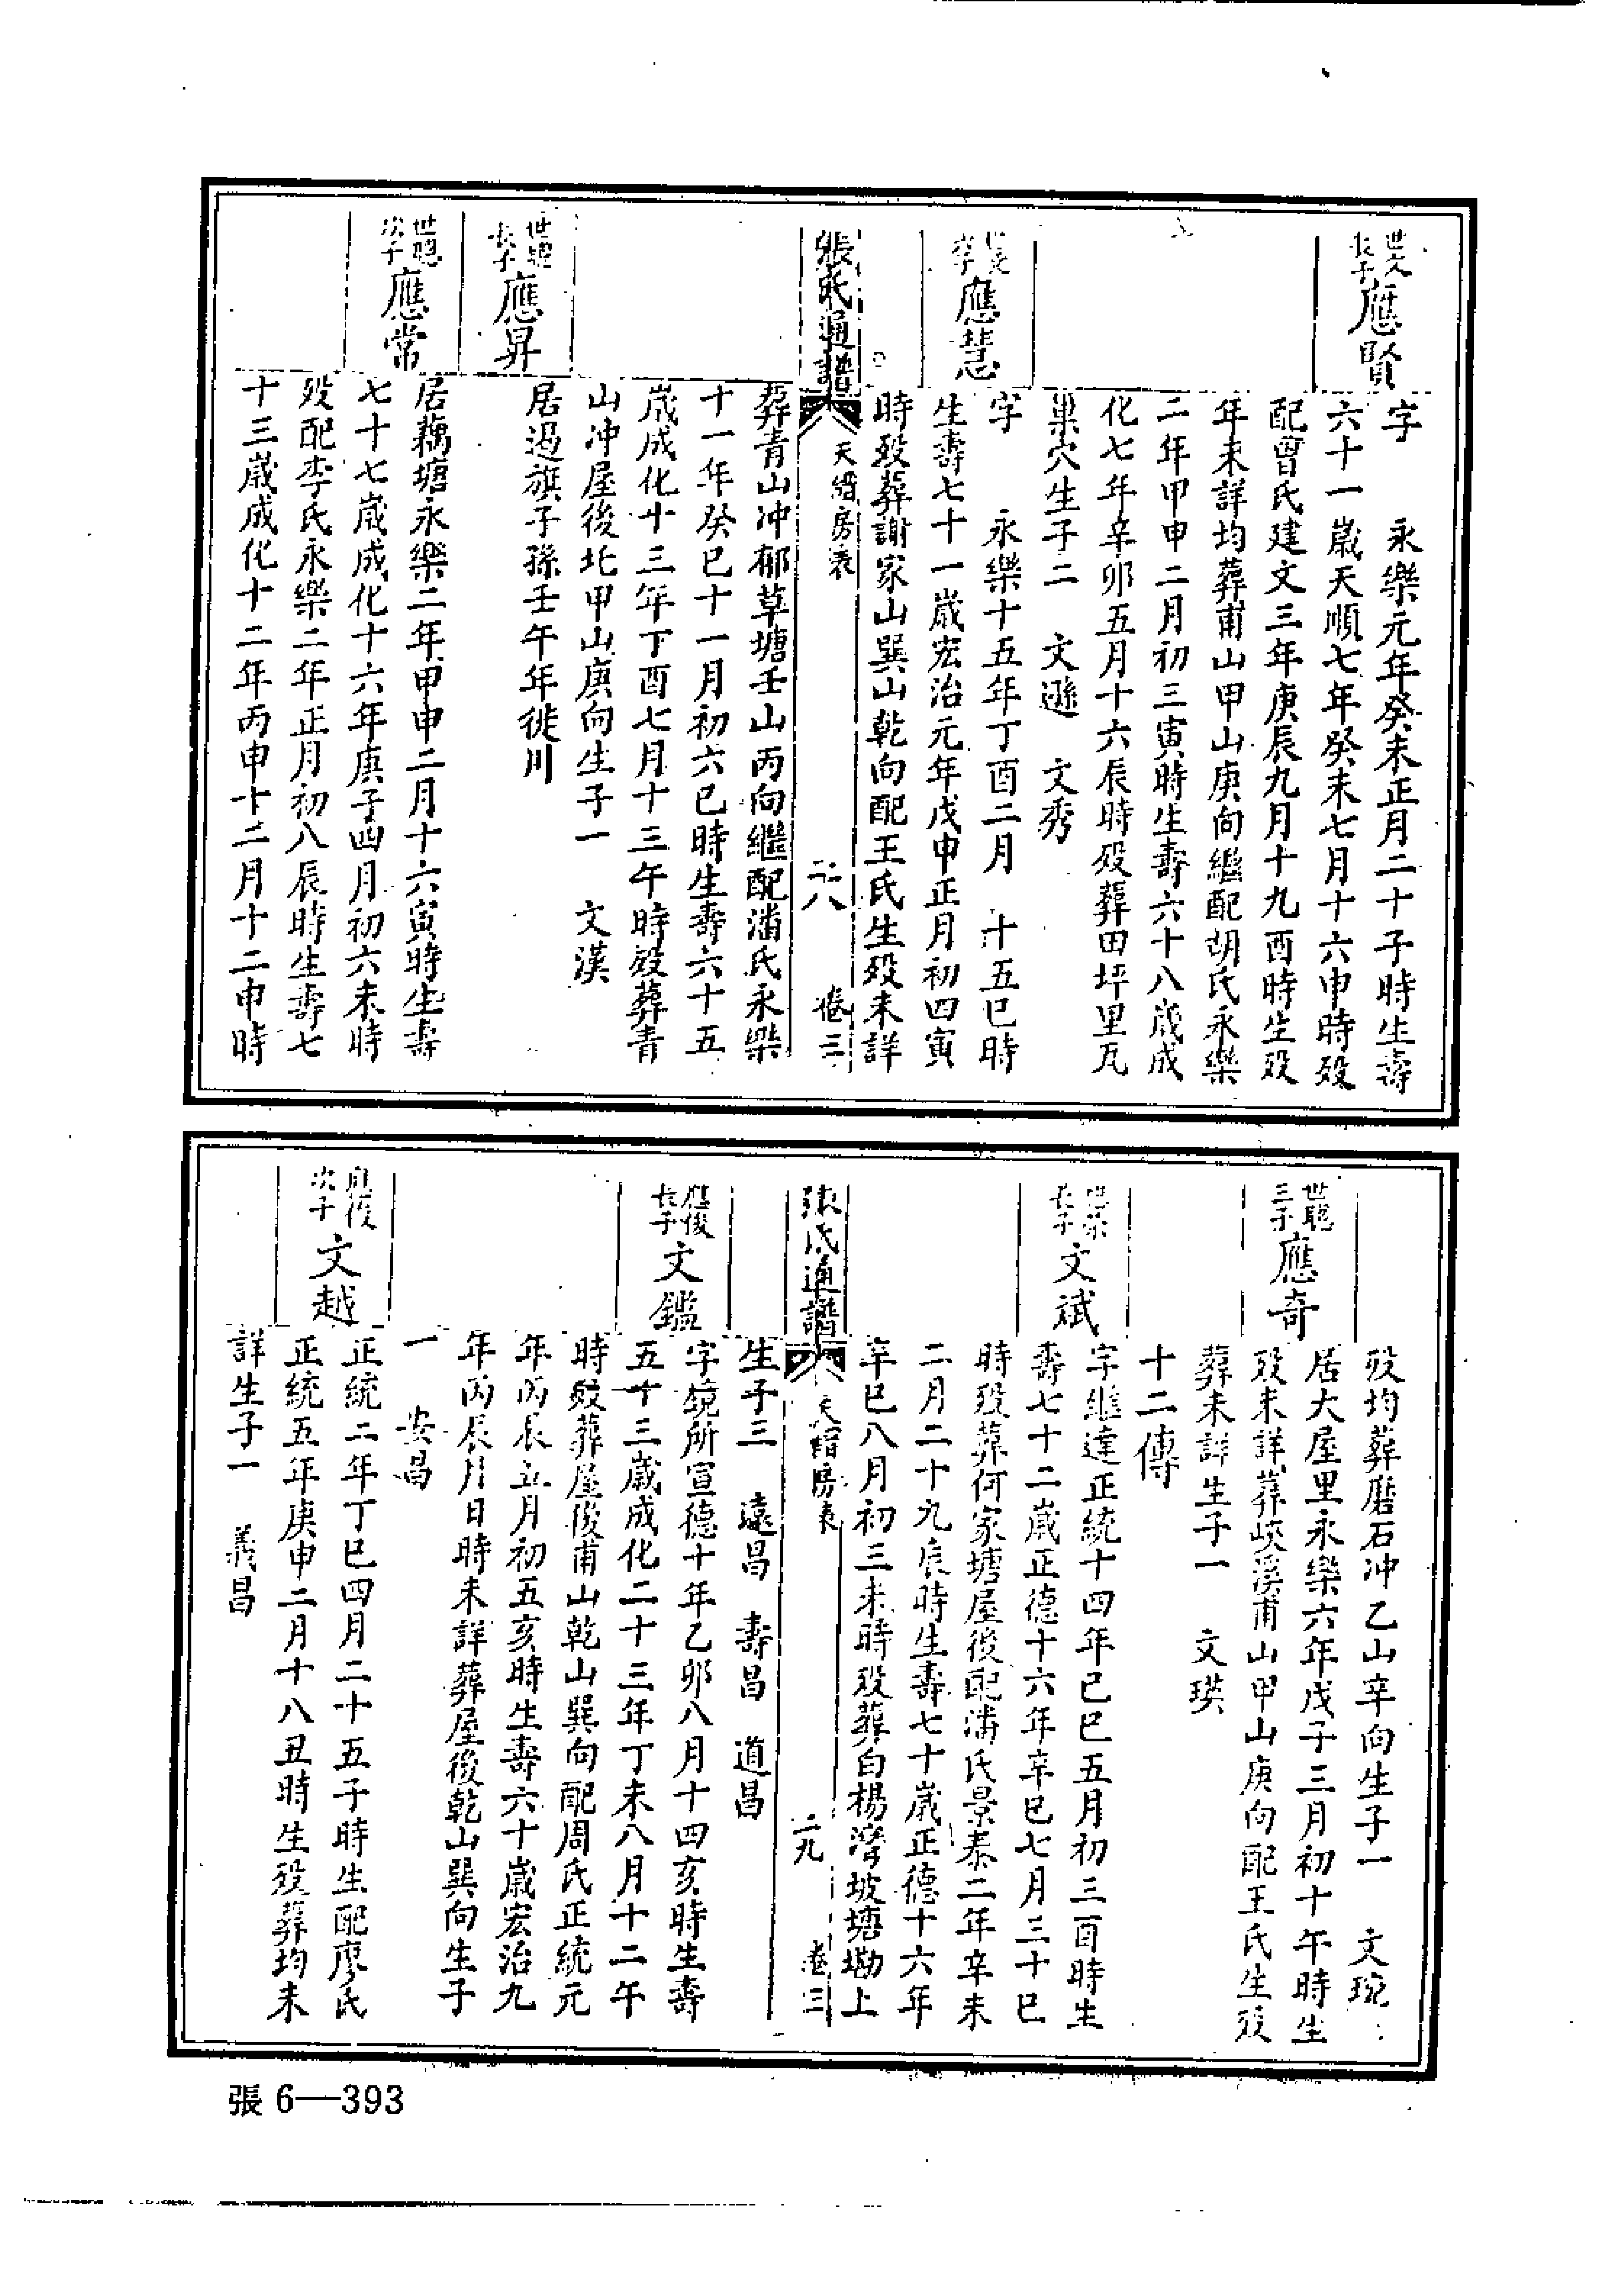 長子應賢
字 永樂元年癸未正月二十子時生壽
六十一歲天順七年癸未七月十六申時殁
配曾氏建文三年庚辰九月十九酉時生殁
年未詳均葬甫山甲山庚向繼配胡氏永樂
二年甲申二月初三寅時生壽六十八歲成
化七年辛卯五月十六辰時殁葬田坪里瓦
巢穴生子二 文遜 文秀
應慧
字 永樂十五年丁酉二月 十五巳時
生壽七十一歲宏治元年戊申正月初四寅
時殁葬謝家山巽山乾向配王氏生殁未詳
張氏通譜 天縉房表 二八 卷三
葬青山冲郁草塘壬山丙向繼配潘氏永樂
十一年癸巳十一月初六巳時生壽六十五
歲成化十三年丁酉七月十三午時殁葬青
山冲屋後坨甲山庚向生子一 文漢
世聰長子應昇
居遏旗子孫壬午年徙川
世聰次子應常
居藕塘永樂二年甲申二月十六寅時生壽
七十七歲成化十六年庚子四月初六未時
殁配李氏永樂二年正月初八辰時生壽七
十三歲成化十二年丙申十二月十二申時
殁均葬磨石冲乙山辛向生子一 文琓
世聰三子應奇
居大屋里永樂六年戊子三月初十午時生
殁未詳葬峽溪甫山甲山庚向配王氏生殁
葬未詳生子一 文瑛
十二傳
長子文斌
字繼達正統十四年己巳五月初三酉時生
壽七十二歲正德十六年辛巳七月三十巳
時殁葬何家塘屋後配潘氏景泰二年辛未
二月二十九辰時生壽七十歲正德十六年
辛巳八月初三未時殁葬白楊灣坡塘坳上
張氏通譜 天縉房表 二九 卷三
生子三 遠昌 壽昌 道昌
應俊長子文鑑
字鏡所宣德十年乙卯八月十四亥時生壽
五十三歲成化二十三年丁未八月十二午
時殁葬屋後甫山乾山巽向配周氏正統元
年丙辰五月初五亥時生壽六十歲宏治九
年丙辰月日時未詳葬屋後乾山巽向生子
一 安昌
應俊次子文越
正統二年丁巳四月二十五子時生配廖氏
正統五年庚申二月十八丑時生殁葬均未
詳生子一 義昌
張 6—393